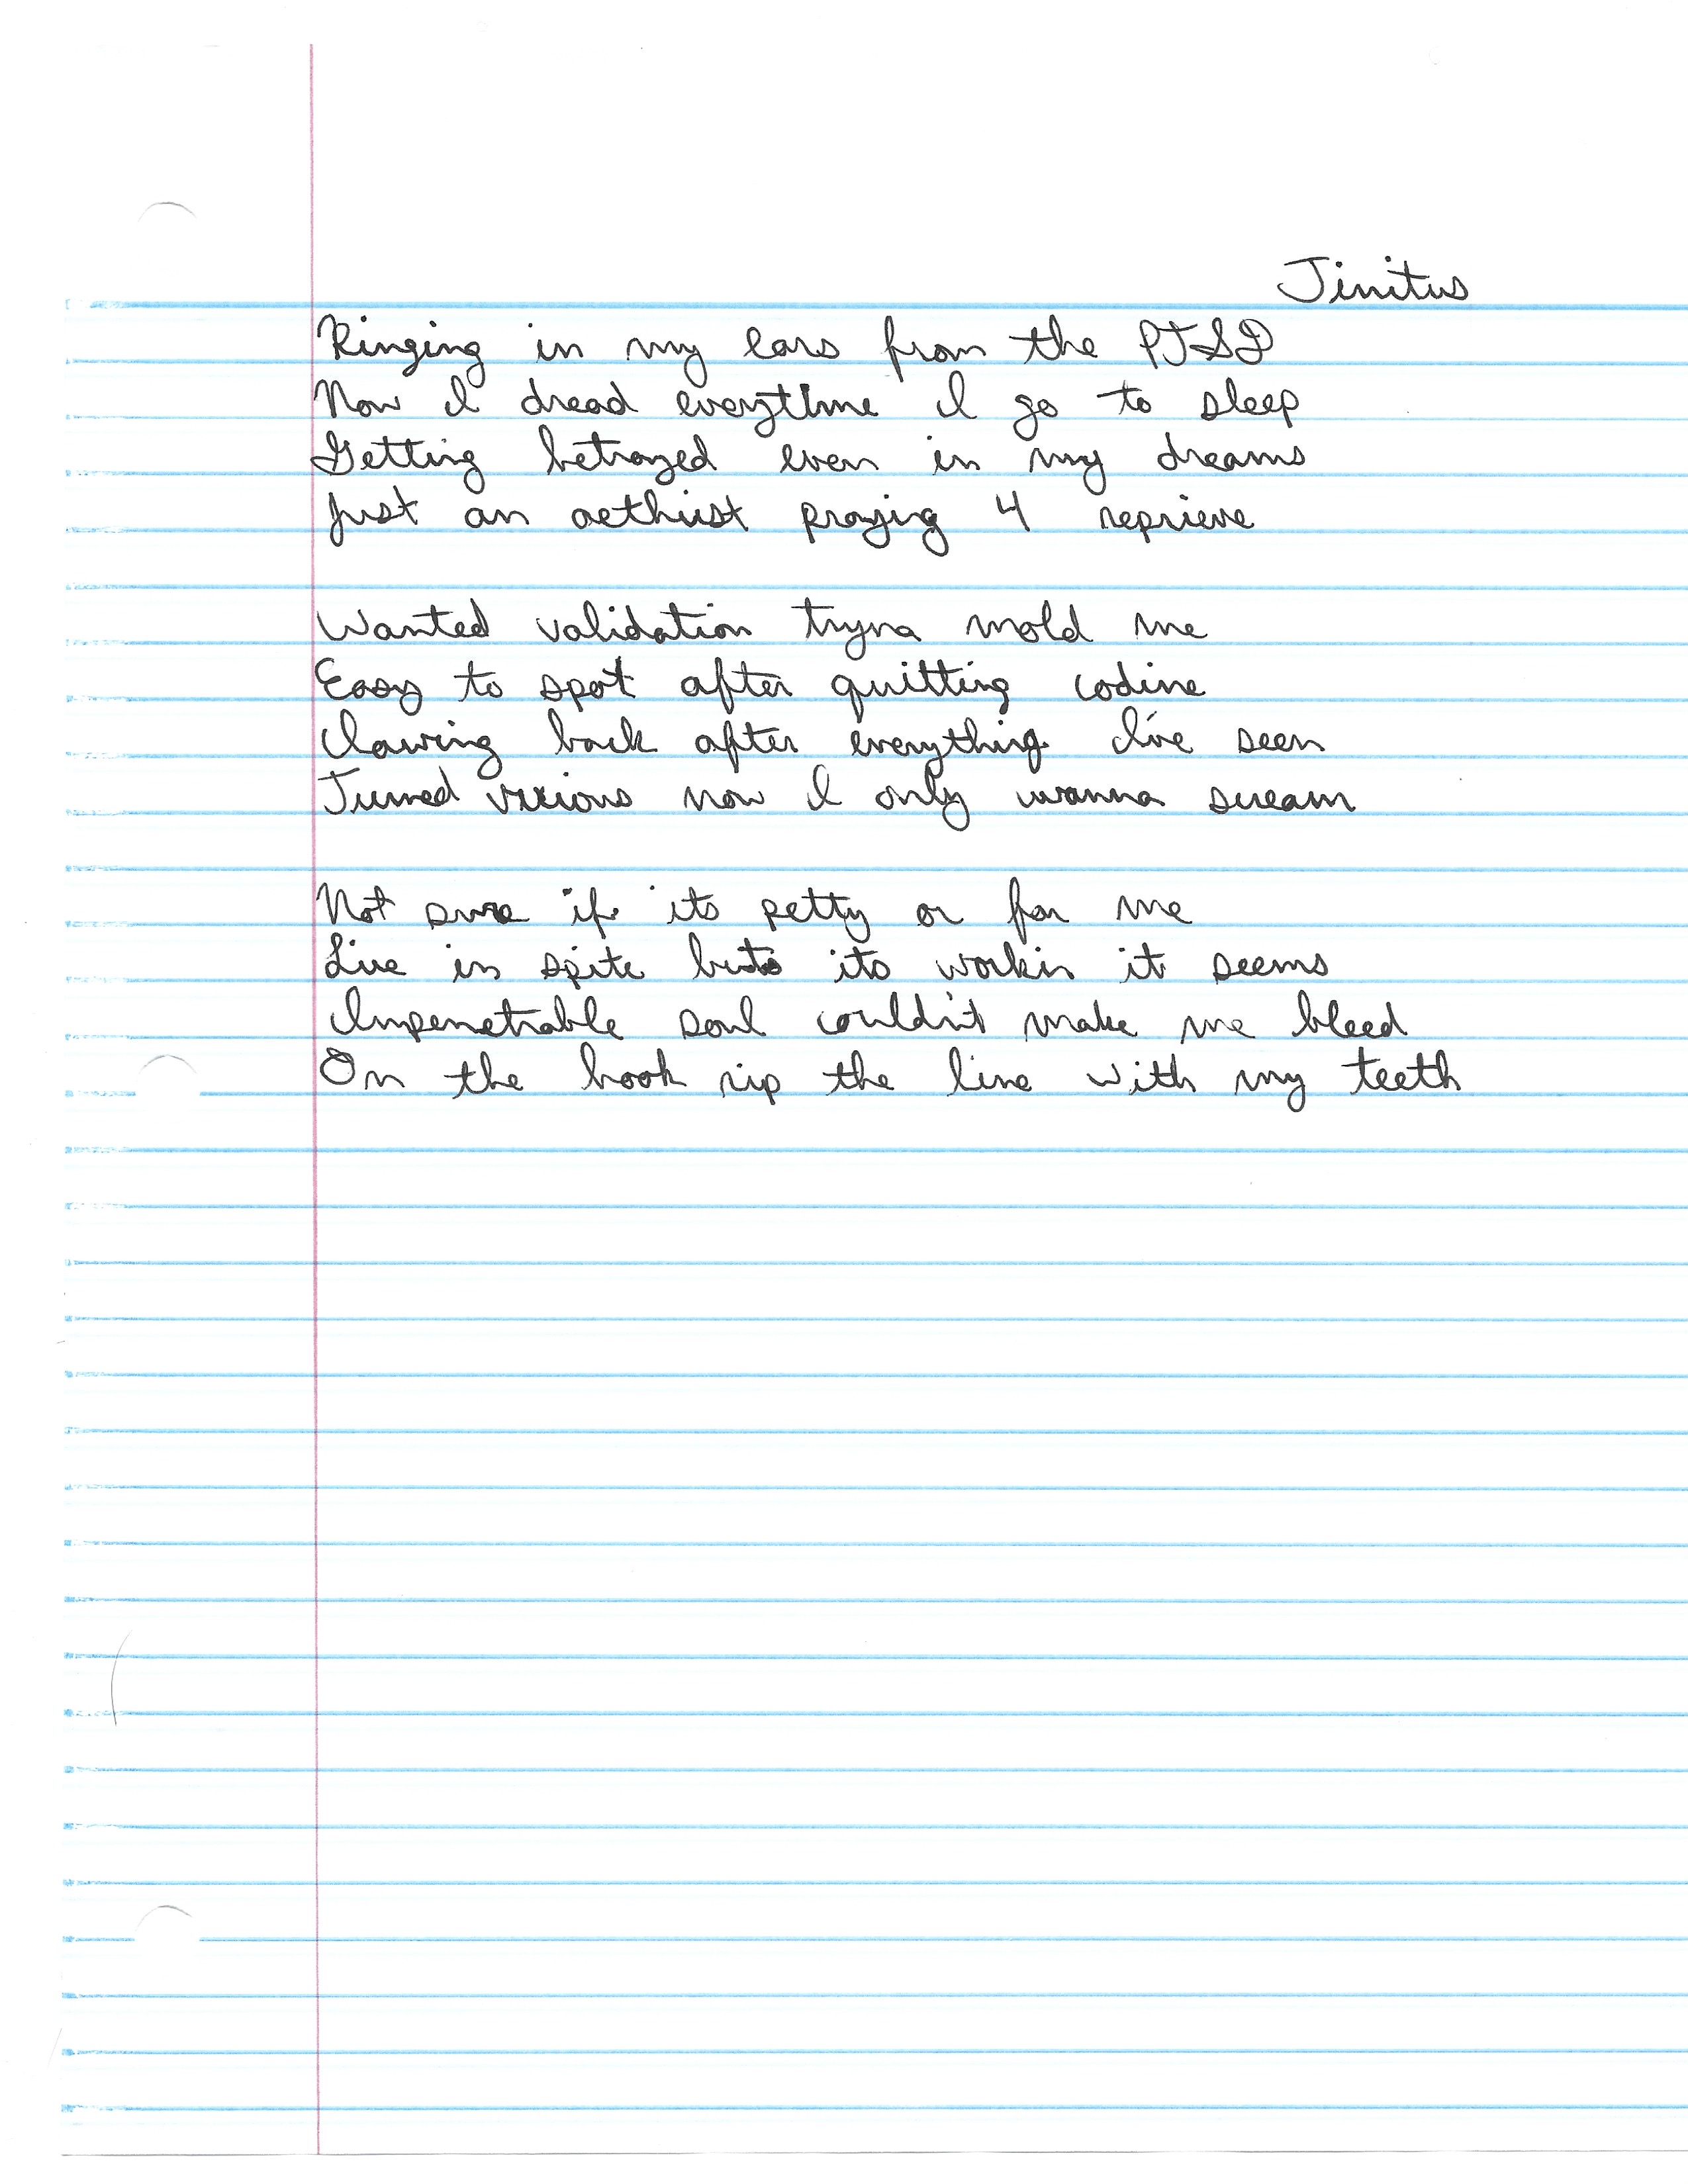 Tinitus
Ringing in my ears from the PTSD
Now I dread everytime I go to sleep
Getting betrayed even in my dreams
Just an aethiist praying 4 reprieve
Wanted validation tryna mold me
Easy to spot after quitting codine
Clawing back after everything I've seen
Turned vicious now I only wanna scream
Not sure if its petty or for me
Live in spite but its workin it seems
Impenetrable soul couldn't make me bleed
On the hook rip the line with my teeth